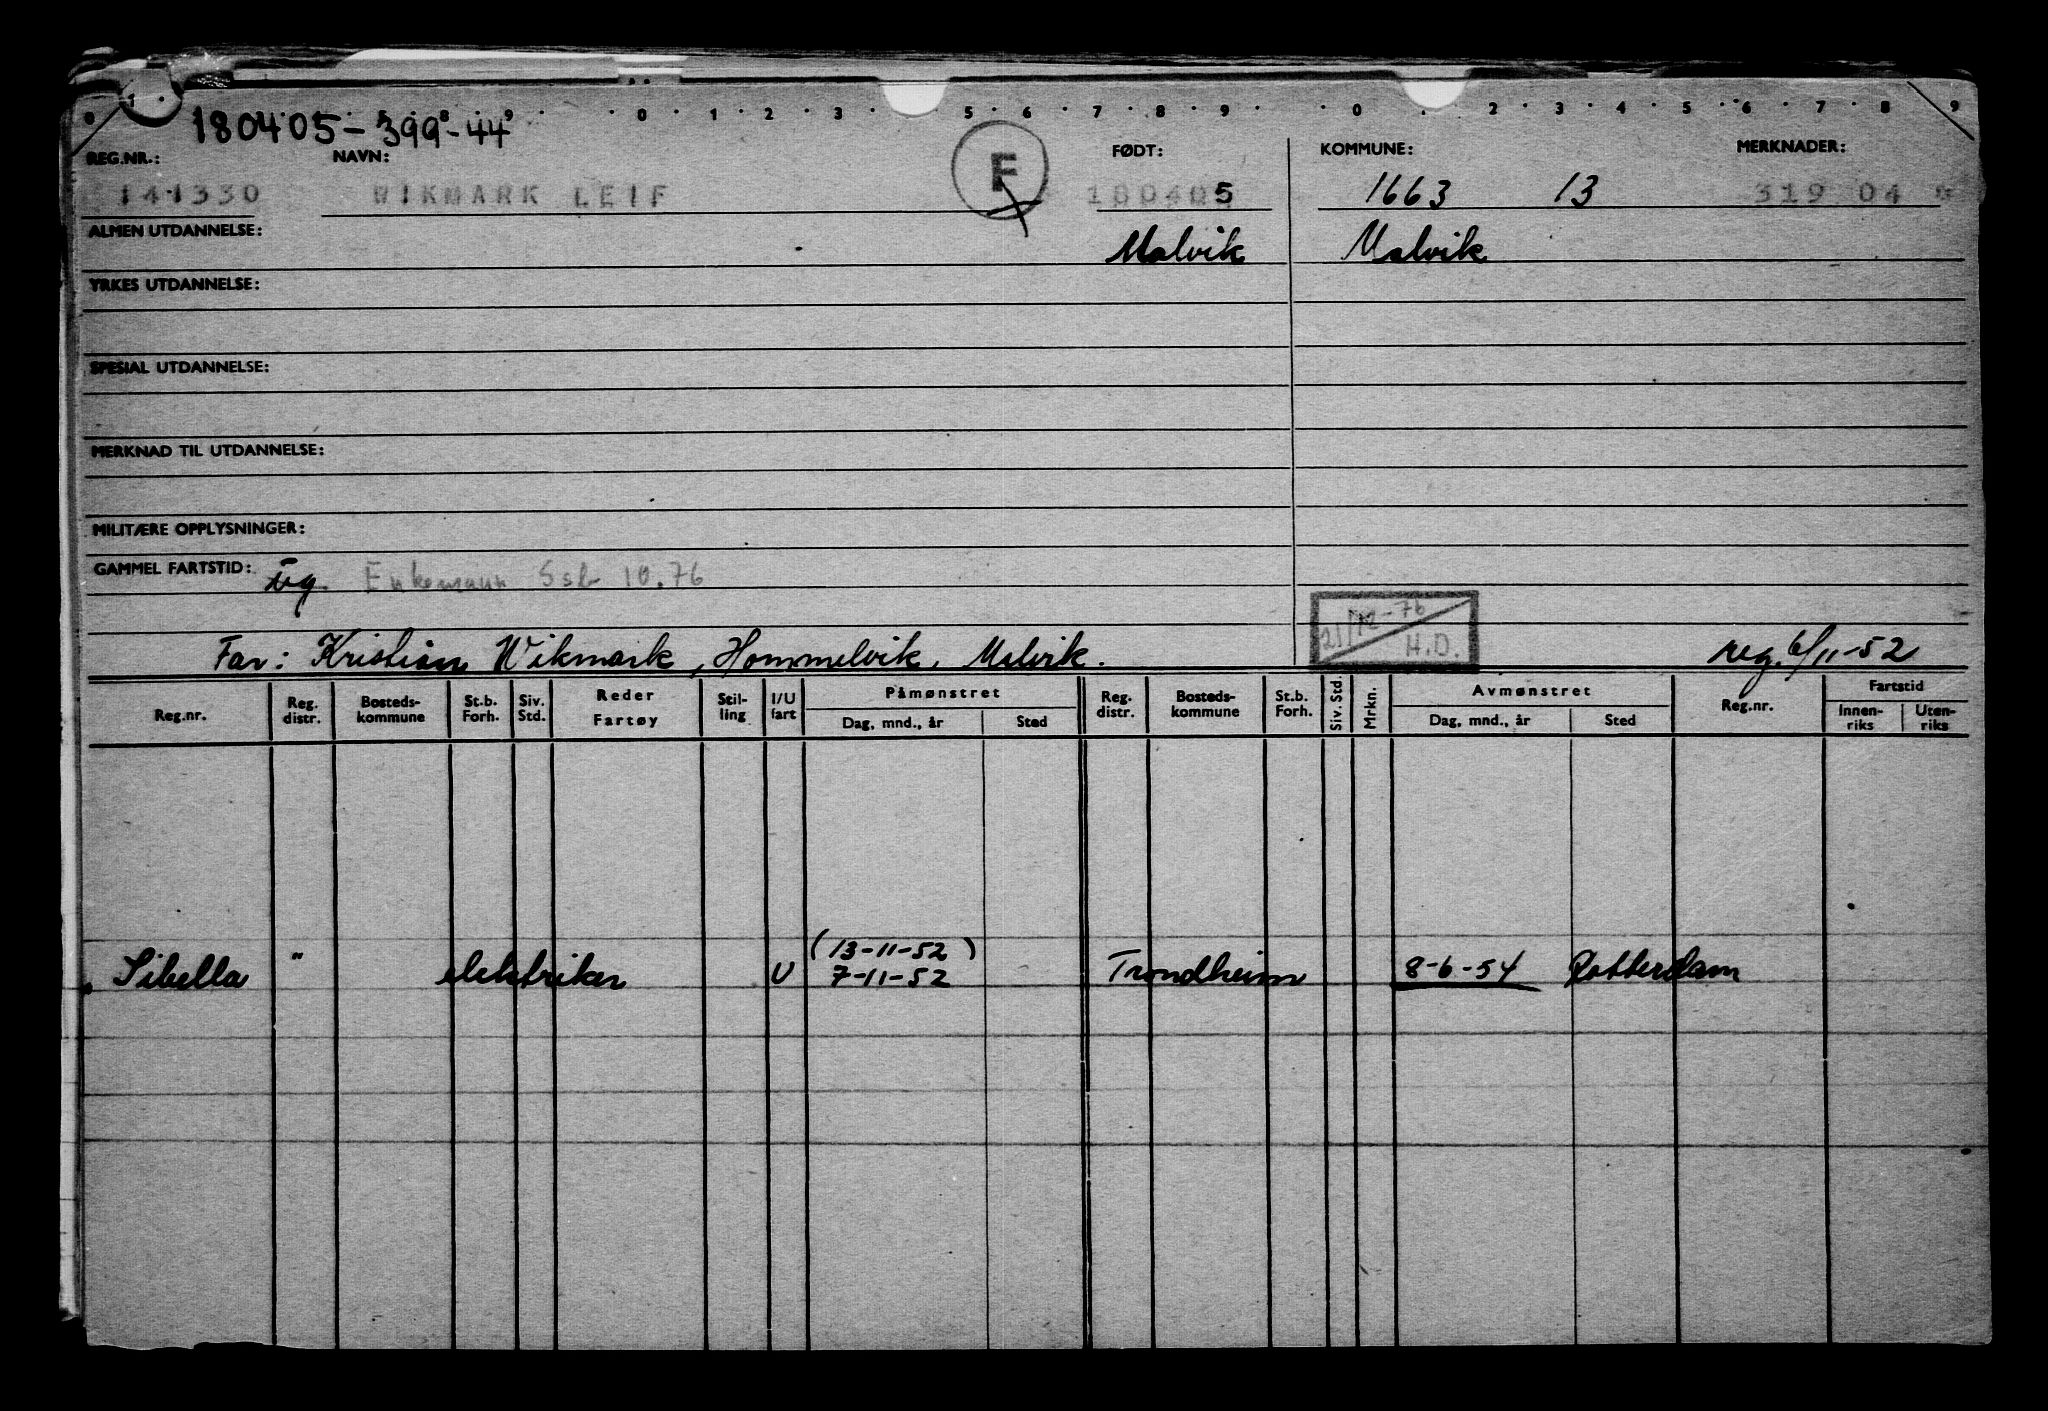 180405-399-44
REG.NR.: NAVN: FØDT: KOMMUNE: MERKNADER:
141330 WIKMARK LEIF F 180405 1663 13 319 04
ALMEN UTDANNELSE: Malvik Malvik
YRKES UTDANNELSE:
SPESIAL UTDANNELSE:
MERKNAD TIL UTDANNELSE:
MILITÆRE OPPLYSNINGER:
GAMMEL FARTSTID: Enkemann Ssb 10.76
21/12-76 H.D.
Far: Kristian Wikmark, Hommelvik, Malvik. reg. 6/11-52
Reg.nr. Reg. distr. Bosteds-kommune St.b. Forh. Siv. Std. Reder Fartøy Stil-ling I/U fart Påmønstret Dag, mnd., år Sted Reg. distr. Bosteds-kommune St.b. Forh. Siv. Std. Mrkn. Avmønstret Dag, mnd., år Sted Reg.nr. Fartstid Innen-riks Uten-riks
(13-11-52)
Sibella " elektriker U 7-11-52 Trondheim 8-6-54 Rotterdam